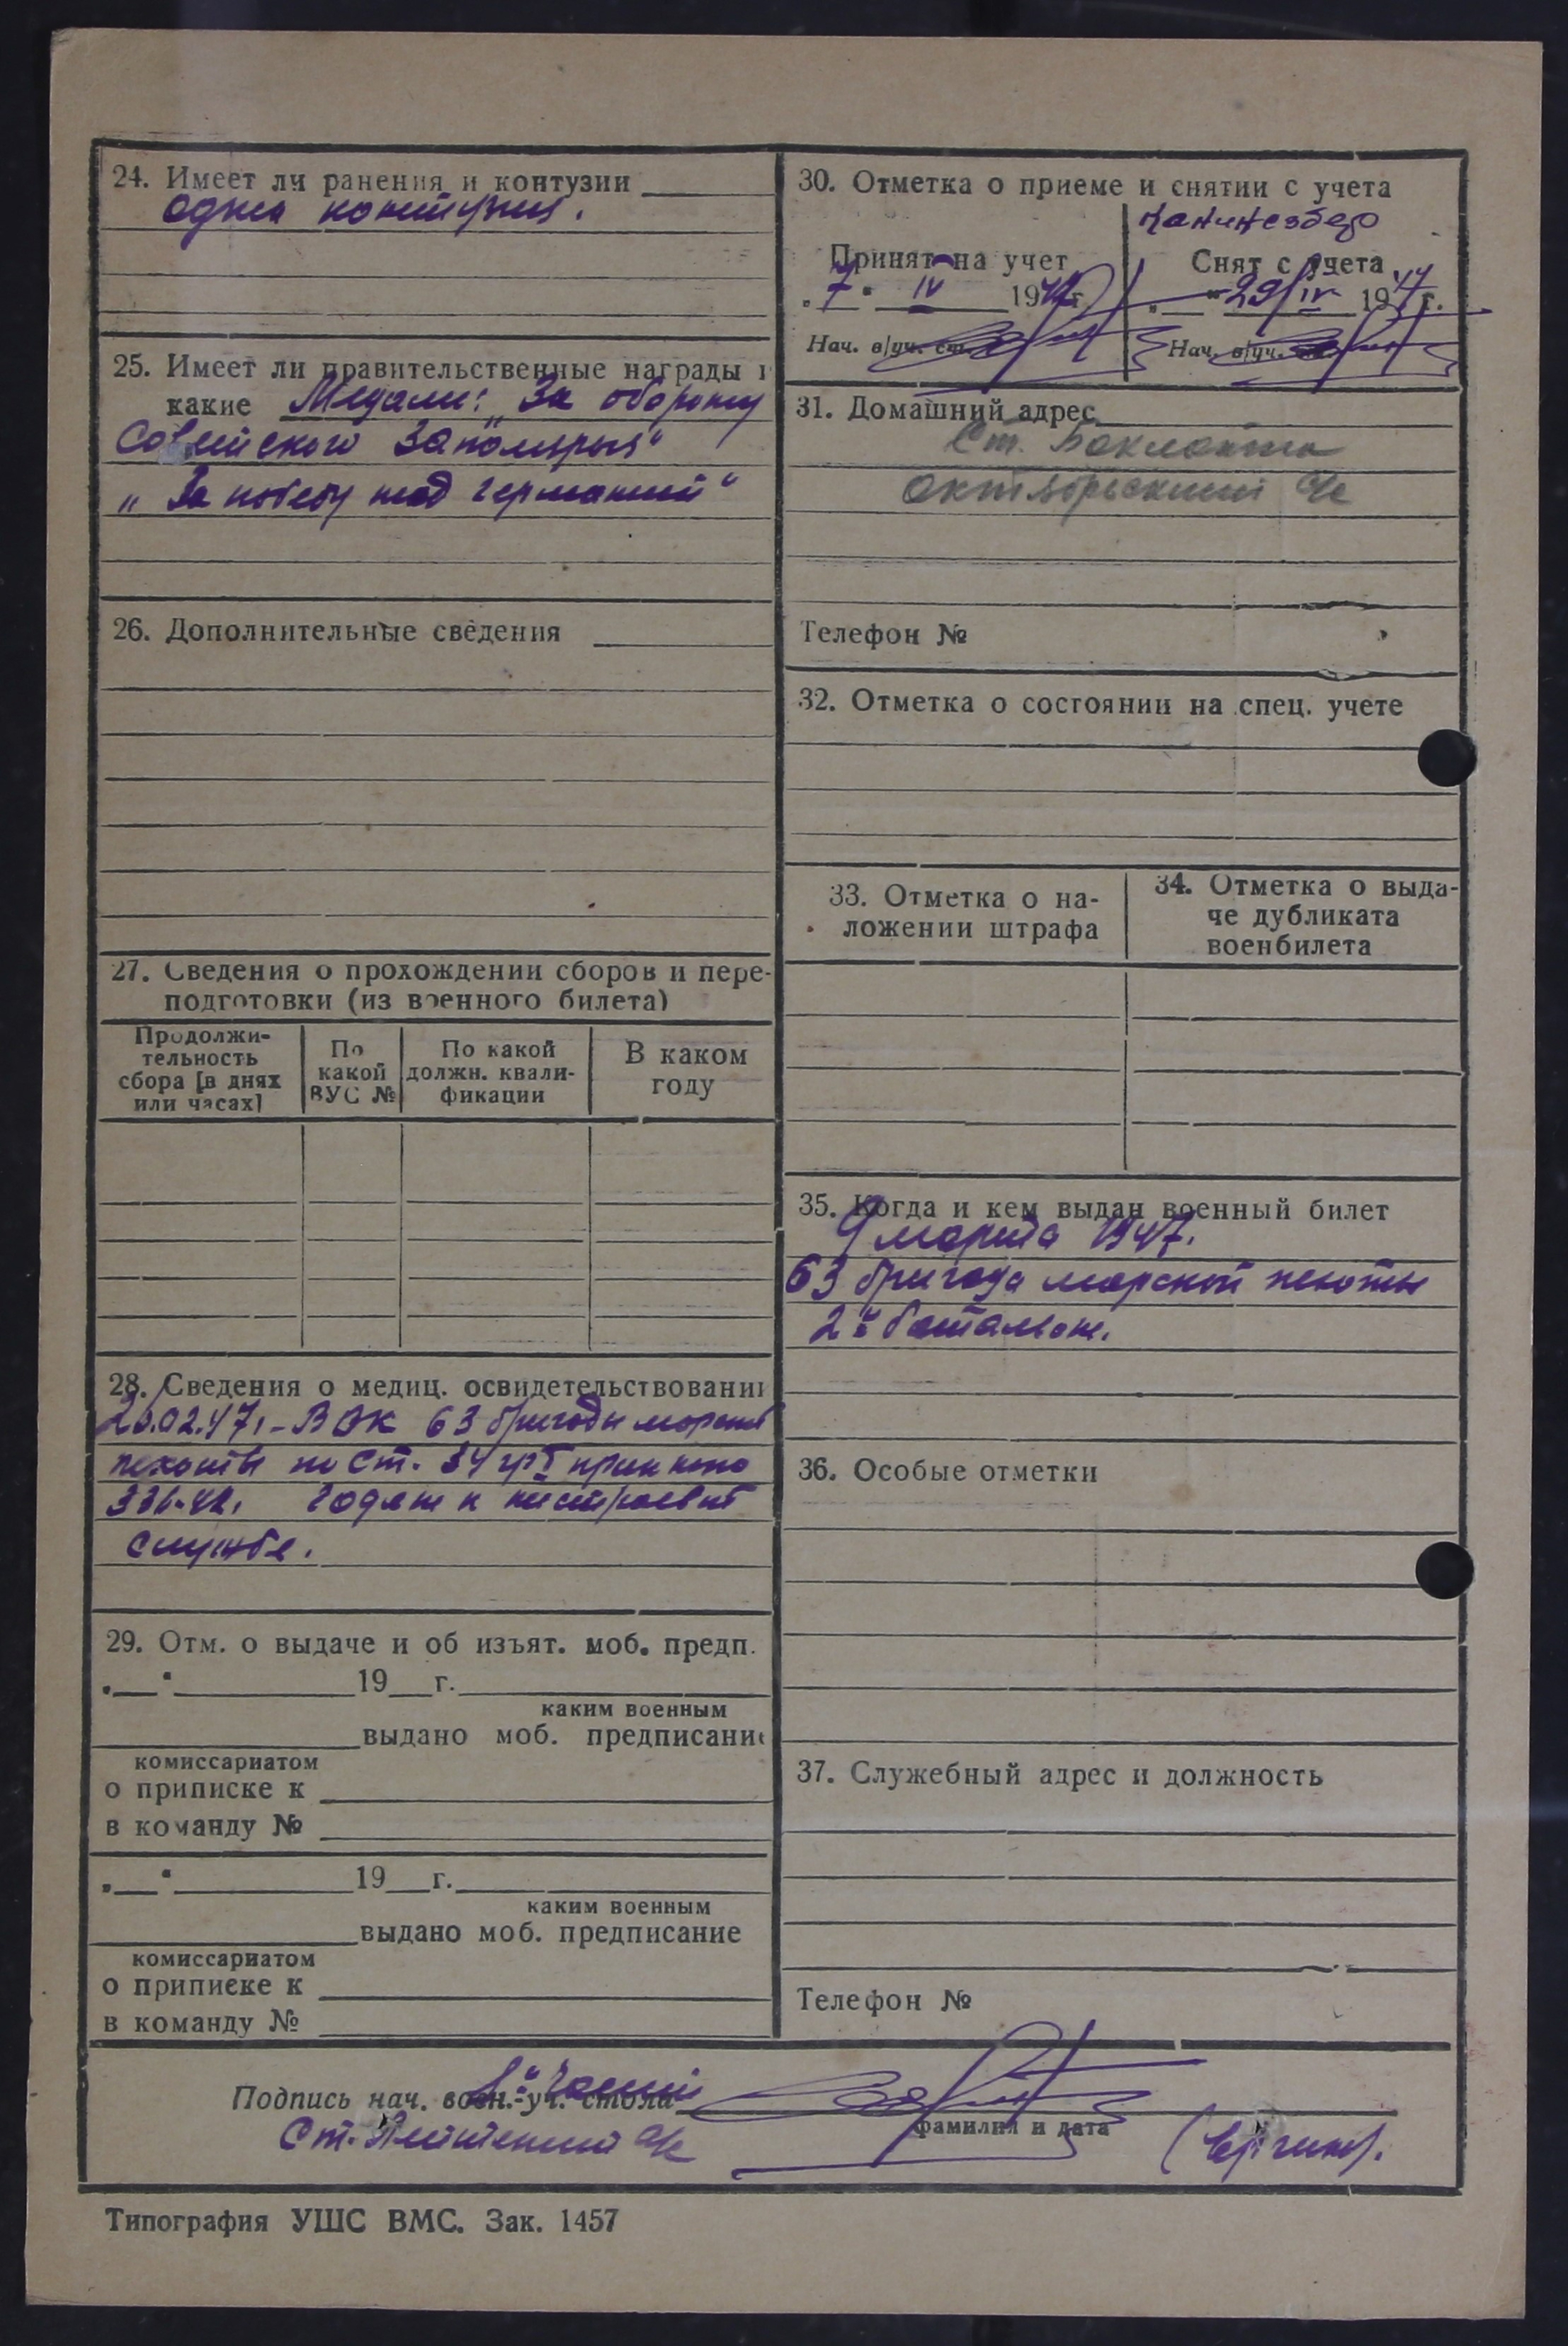 24. Имеет ли ранения и контузии
одна контузия.
25. Имеет ли правительственные награды и
какие Медали: „За оборону
Советского Заполярья“
„За победу над германией“
26. Дополнительные сведения
27. Сведения о прохождении сборов и пере-
подготовки (из военного билета)
Продолжи-
тельность
сбора [в днях
или часах]
По
какой
ВУС №
По какой
должн. квали-
фикации
В каком
году
28. Сведения о медиц. освидетельствовании
02.47. - ВВК 63 бригады морской
пехоты по ст. 34 гр I приказа
годен к нестроевой
службе.
29. Отм. о выдаче и об изъят. моб. предп.
„__“ 19__г.
каким военным
выдано моб. предписание
комиссариатом
о приписке к
в команду №
„__“ 19__г.
каким военным
выдано моб. предписание
комиссариатом
о приписке к
в команду №
30. Отметка о приеме и снятии с учета
Принят на учет
„7“ IV 1947г.
Нач. в/уч. ст.
Снят с учета
„__“ 29/IV 1947 г.
Нач. в/уч.
31. Домашний адрес
Ст.
Октябрьский
Телефон №
32. Отметка о состоянии на спец. учете
33. Отметка о на-
ложении штрафа
34. Отметка о выда-
че дубликата
военбилета
35. Когда и кем выдан военный билет
9 марта 1947.
63 бригада морской пехоты
2й батальон.
36. Особые отметки
37. Служебный адрес и должность
Телефон №
Подпись нач. воен.-уч. стола
1й части
фамилия и дата
Ст. Лейтенант
Типография УШС ВМС. Зак. 1457